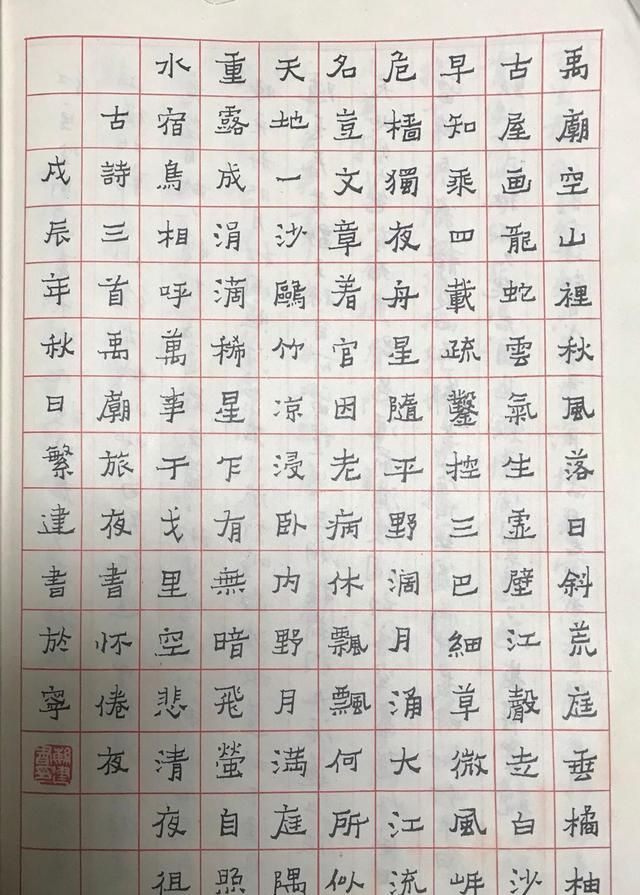 禹廟空山裡秋風落日斜荒庭垂橘柚
古屋画龍蛇雲氣生虛壁江聲走白沙
早知乘四載疏鑿控三巴細草微風岸
危檣獨夜舟星隨平野濶月涌大江流
名豈文章着官因老病休飄飄何所似
天地一沙鷗竹凉浸臥内野月滿庭隅
重露成涓滴稀星乍有無暗飛螢自照
水宿鳥相呼萬事干戈里空悲清夜徂
古詩三首禹廟旅夜書怀倦夜
戊辰年秋日繁建書於寧